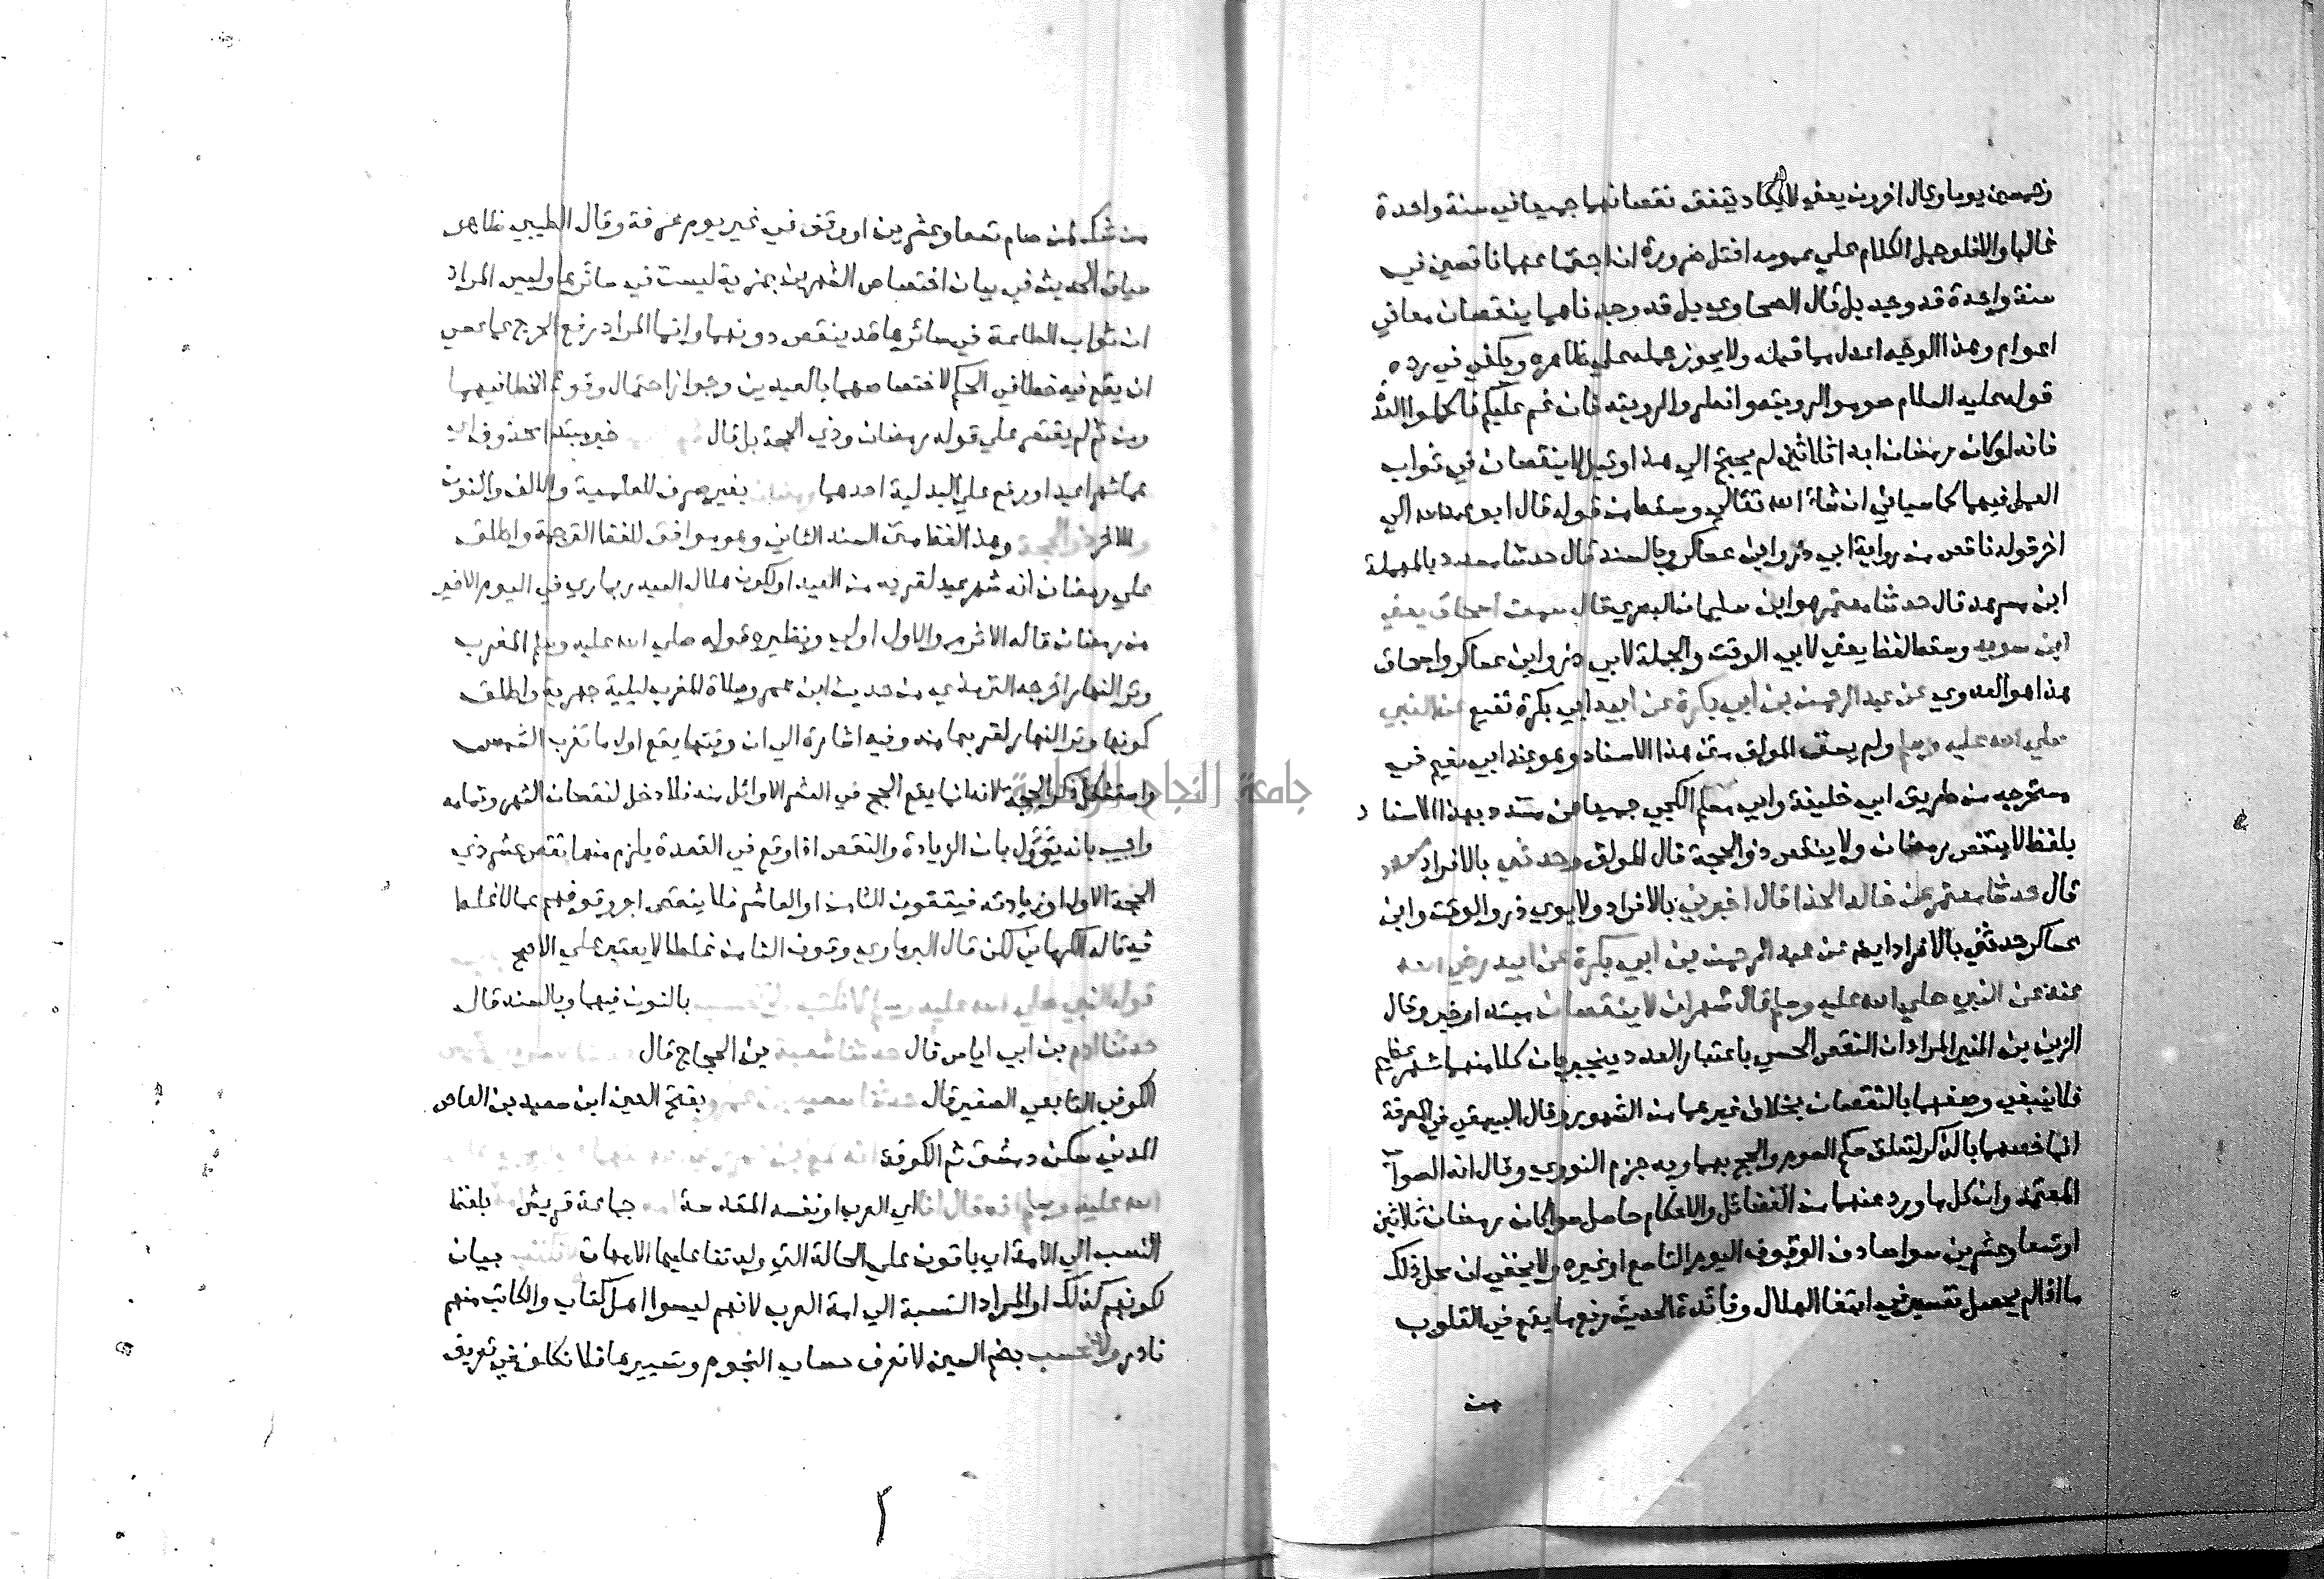 وخمسين يوما وقال اخرون يعني لا يكاد يتفق نقصانهما جميعا في سنة واحدة
غالبا والا فلو حمل الكلام علي عمومه اختل ضرورة ان اجتماعهما ناقصين في
سنة واحدة قد وجد بل قال الطحاوي بل قد وجدناهما ينقصان معا في
اعوام وهذا الوجه اعدل مما قبله ولا يجوز حمله علي ظاهره ويكفي في رده
قوله عليه السلام صوموا لرويته وافطروا لرويته فان غم عليكم فاكملوا العدة
فانه لو كان رمضان ابدا ثلاثين لم يحتج الي هذا وقيل لا ينقصان في ثواب
العمل فيهما كما سياتي ان شاء الله تعالي وسقط من قوله قال ابو عبد الله الي
اخر قوله ناقص من رواية ابي ذر وابن عساكر وبالسند قال حدثنا مسدد بالمهملة
ابن مسرهد قال حدثنا معتمر هو ابن سليمان البصري قال سمعت اسحاق يعني
ابن سويد وسقط لفظ يعني لابي الوقت والجملة لابي ذر وابن عساكر واسحاق
هذا هو العدوي عن عبد الرحمن بن ابي بكرة عن ابيه ابي بكرة نفيع عن النبي
صلي الله عليه وسلم ولم يسق المولف متن هذا الاسناد وهو عند ابي نعيم في
مستخرجه من طريق ابي خليفة وابي مسلم الكجي جميعا عن مسدد بهذا الاسناد
بلفظ لا ينقص رمضان ولا ينقص ذو الحجة قال المولف وحدثني بالافراد مسدد
قال حدثنا معتمر عن خالد الحذا قال اخبرني بالافراد ولابوي ذر والوقت وابن
عساكر حدثني بالافراد ايضا عن عبد الرحمن بن ابي بكرة عن ابيه رضي الله
عنه عن النبي صلي الله عليه وسلم قال شهران لا ينقصان مبتدا وخبر وقال
الزين بن المنير المراد ان النقص الحسي باعتبار العدد ينجبر بان كلا منهما شهر عظيم
فلا ينبغي وصفهما بالنقصان بخلاف غيرهما من الشهور وقال البيهقي في المعرفة
انما خصهما بالذكر لتعلق حكم الصوم والحج بهما وبه جزم النووي وقال انه الصواب
المعتمد وان كل ما ورد عنهما من الفضائل والاحكام حاصل سوا كان رمضان ثلاثين
او تسعا وعشرين سوا صادف الوقوف اليوم التاسع او غيره ولا يخفي ان محل ذلك
ما اذا لم يحصل تقصير في ابتغا الهلال وفائدة الحديث رفع ما يقع في القلوب
من
من شك لمن صام تسعا وعشرين او وقف في غير يوم عرفة وقال الطيبي ظاهر
سياق الحديث في بيان اختصاص الشهرين بمزية ليست في سائرها وليس المراد
ان ثواب الطاعة في سائرها قد ينقص دونهما وانما المراد رفع الحرج عما عسي
ان يقع فيه خطا في الحكم لاختصاصهما بالعيدين وجواز احتمال وقوع الخطا فيهما
ومن ثم لم يقتصر علي قوله رمضان وذي الحجة بل قال خبر مبتدا محذوف اي
هما شهرا عيد او رفع علي البدلية احدهما رمضان بغير صرف للعلمية والالف والنون
والاخر ذو الحجة وهذا لفظ متن السند الثاني وهو موافق للفظ الترجمة واطلق
علي رمضان انه شهر عيد لقربه من العيد او لكون هلال العيد ربما ري في اليوم الاخير
من رمضان قاله الاثرم والاول اولي ونظيره قوله صلي الله عليه وسلم المغرب
وتر النهار اخرجه الترمذي من حديث ابن عمر وصلاة المغرب ليلية جهرية واطلق
كونها وتر النهار لقربها منه وفيه اشارة الي ان وقتها يقع اول ما تغرب الشمس
واستشكل ذكر الحجة لانه انما يقع الحج في العشر الاوائل منه فلا دخل لنقصان الشهر وتمامه
واجيب بانه يؤول بان الزيادة والنقص اذا وقع في القعدة يلزم منهما نقص عشر ذي
الحجة الاول او زيادته فيقفون الثامن او العاشر فلا ينقص اجر وقوفهم عما لا غلط
فيه قاله الكرماني لكن قال البرماوي وقوف الثامن غلطا لا يعتبر علي الاصح
قول النبي صلي الله عليه وسلم لا نكتب ولا نحسب بالنون فيهما وبالسند قال
حدثنا ادم بن ابي اياس قال حدثنا شعبة بن الحجاج قال
الكوفي التابعي الصغير قال حدثنا سعيد بن عمرو بفتح العين ابن سعيد بن العاص
المدني سكن دمشق ثم الكوفة
الله عليه وسلم انه قال انا اي العرب او نفسه المقدسة امة جماعة قريش بلفظ
النسب الي الامة اي باقون علي الحالة التي ولدتنا عليها الامهات بيان
لكونهم كذلك او المراد النسبة الي امة العرب لانهم ليسوا اهل كتاب والكاتب منهم
نادر ولا نحسب بضم السين لا نعرف حساب النجوم وتسييرها فلا نكلف في تعريف
جامعة النجاح الوطنية